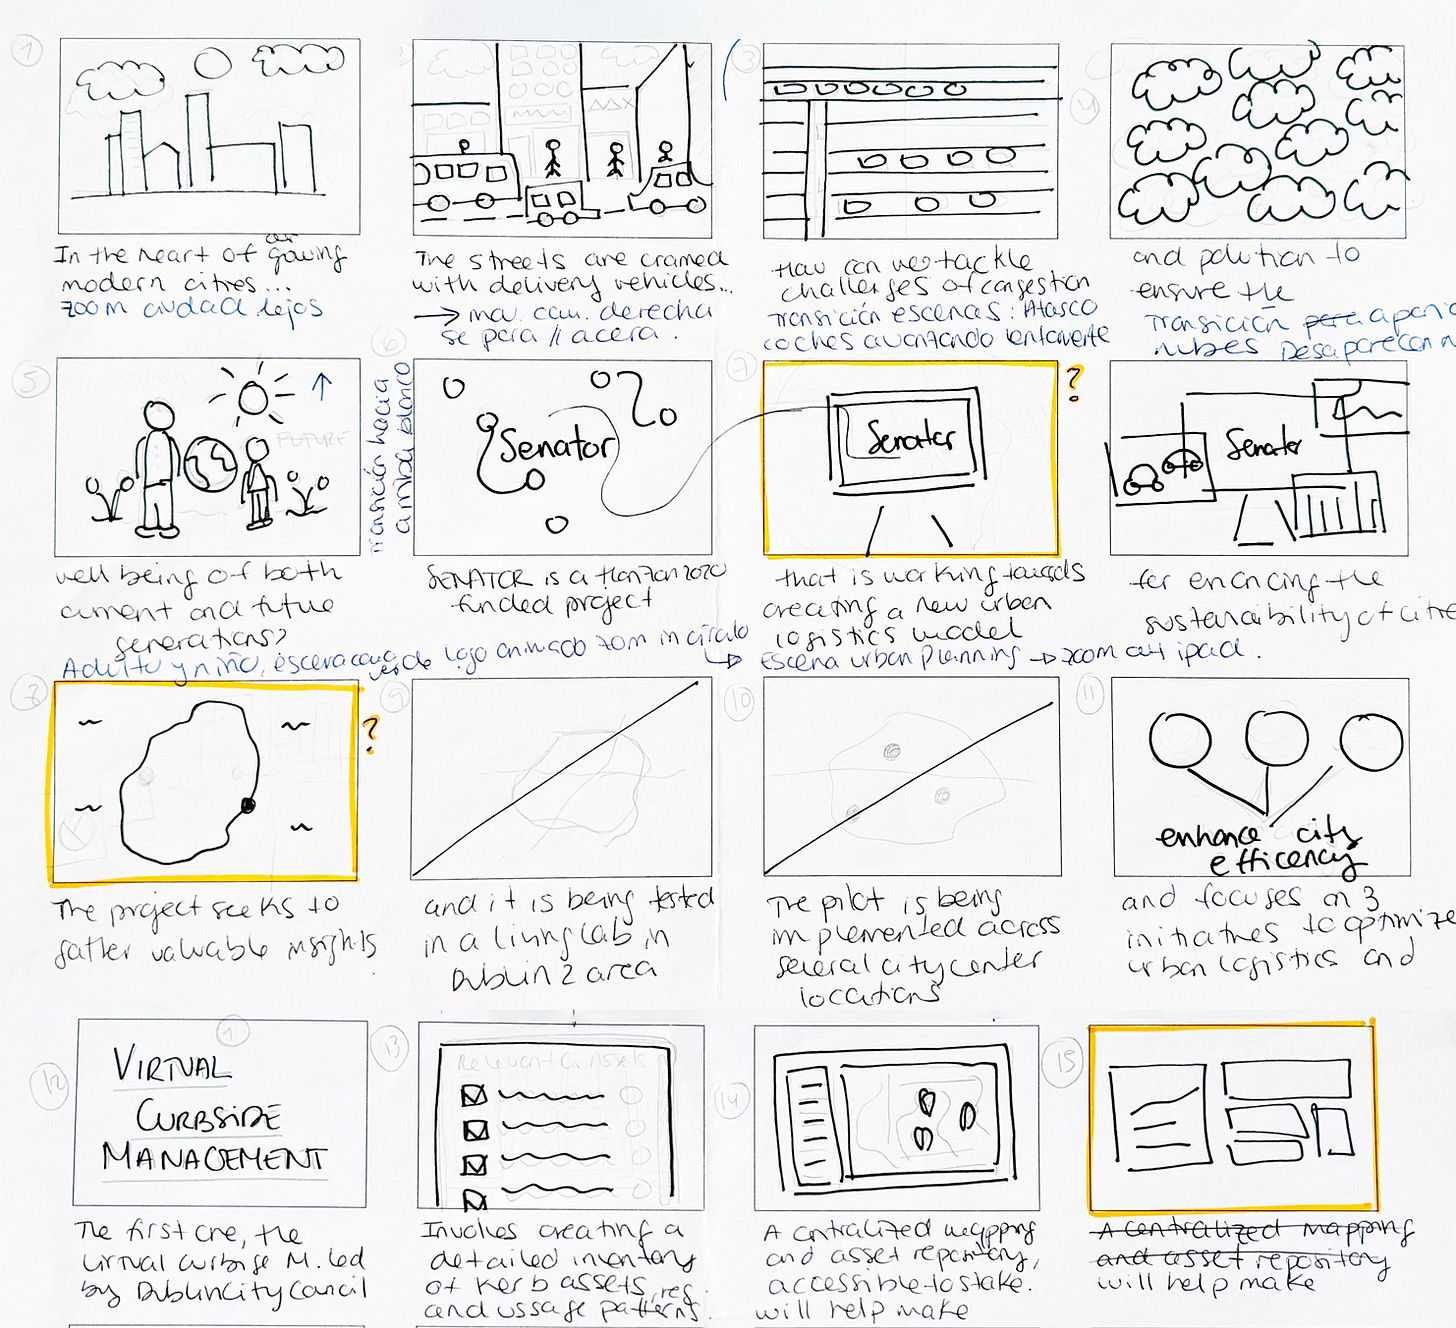 1
In the heart of our
growing
modern cities...
zoom ciudad lejos
The streets are cramed
with delivery vehicles...
→ mov. cam. derecha
se para // acera.
3
How can we tackle
challenges of congestion
Transición escenas: Atasco
coches avanzando lentamente
4
and polution to
ensure the
Transición para aparic
nubes Desaparecen n
5
FUTURE
well being of both
current and future
generations?
Adulto y niño, escena con
verde
6
Transición hacia
arriba blanco
Senator
SENATOR is a Horizon 2020
funded project
logo animado zoom in círculo
7
Senator
?
that is working towards
creating a new urban
logistics model
Escena urban planning → zoom out ipad.
Senator
for enancing the
sustainability of citie
8
?
The project seeks to
gather valuable insights
9
and it is being tested
in a living lab in
Dublin 2 area
10
The pilot is being
implemented across
several city center
locations
11
enhance city
efficency
and focuses on 3
initiatives to optimize
urban logistics and
12
1
VIRTUAL
CURBSIDE
MANAGEMENT
The first one, the
virtual curbise M. led
by Dublin City Council
13
Relevant C. Assets
Involves creating a
detailed inventory
of Kerb assets, reg.
and ussage patterns.
14
A centralized mapping
and asset repository,
accessible to stake.
will help make
15
A centralized mapping
and asset repository
will help make